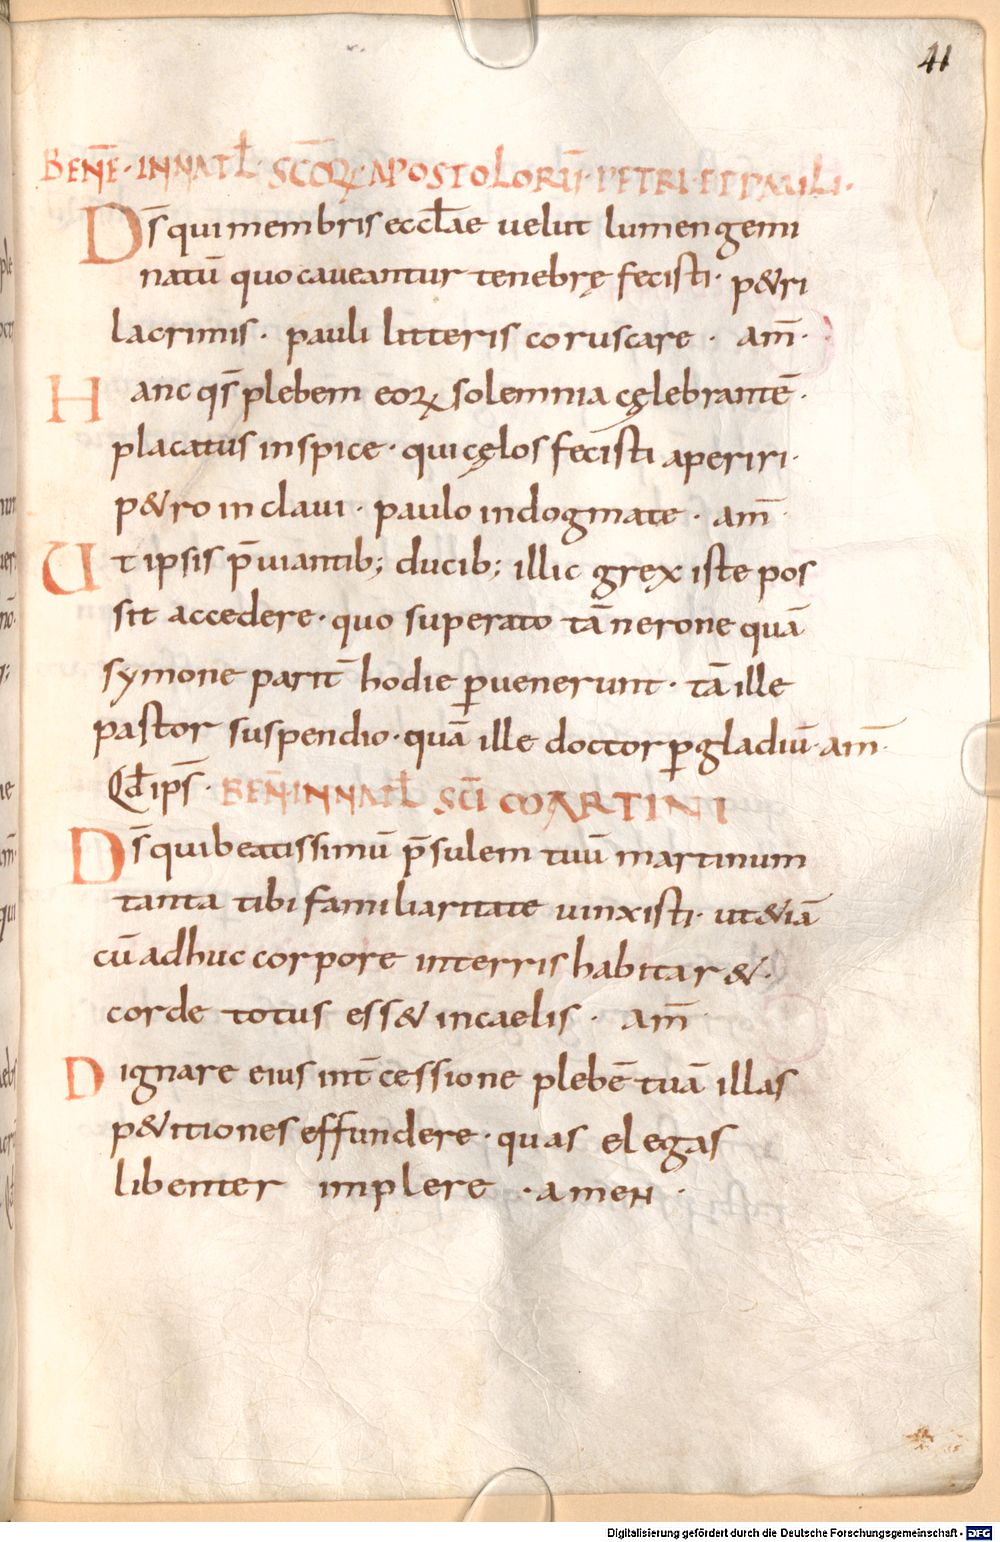 41
BENE͞·IN NATL̄·SC͞OꝜ·APOSTOLORŪ·PETRI·ET PAULI·
D͞s qui membris eccl̄ae velut lumen gemi
natū quo caveantur tenebrę fecisti· p&ri
lacrimis· pauli litteris coruscare· am̄·
Hanc qs̄ plebem eoꝝ solemnia cęlebrantē·
placatus inspice· qui cęlos fecisti aperiri·
p&ro in clavi· paulo in dogmate· am̄·
Ut ipsis p̄viantib; ducib; illic grex iste pos
sit accedere· quo superato tā nerone quā
symone parit̄ hodie ꝑvenerunt· tā ille
pastor suspendio· quā ille doctor ꝑ gladiū· am̄·
Qd̄ ips̄· BEN̄ IN NATL̄ SC̄I MARTINI
D͞s qui beatissimū p̄sulem tuū martinum
tanta tibi familiaritate vinxisti· ut &iā
cū adhuc corpore in terris habitar&·
corde totus ess& in caelis· am̄
Dignare eius int̄cessione plebē tuā illas
p&itiones effundere· quas elegas
libenter implere· ameN·
Digitalisierung gefördert durch die Deutsche Forschungsgemeinschaft - DFG